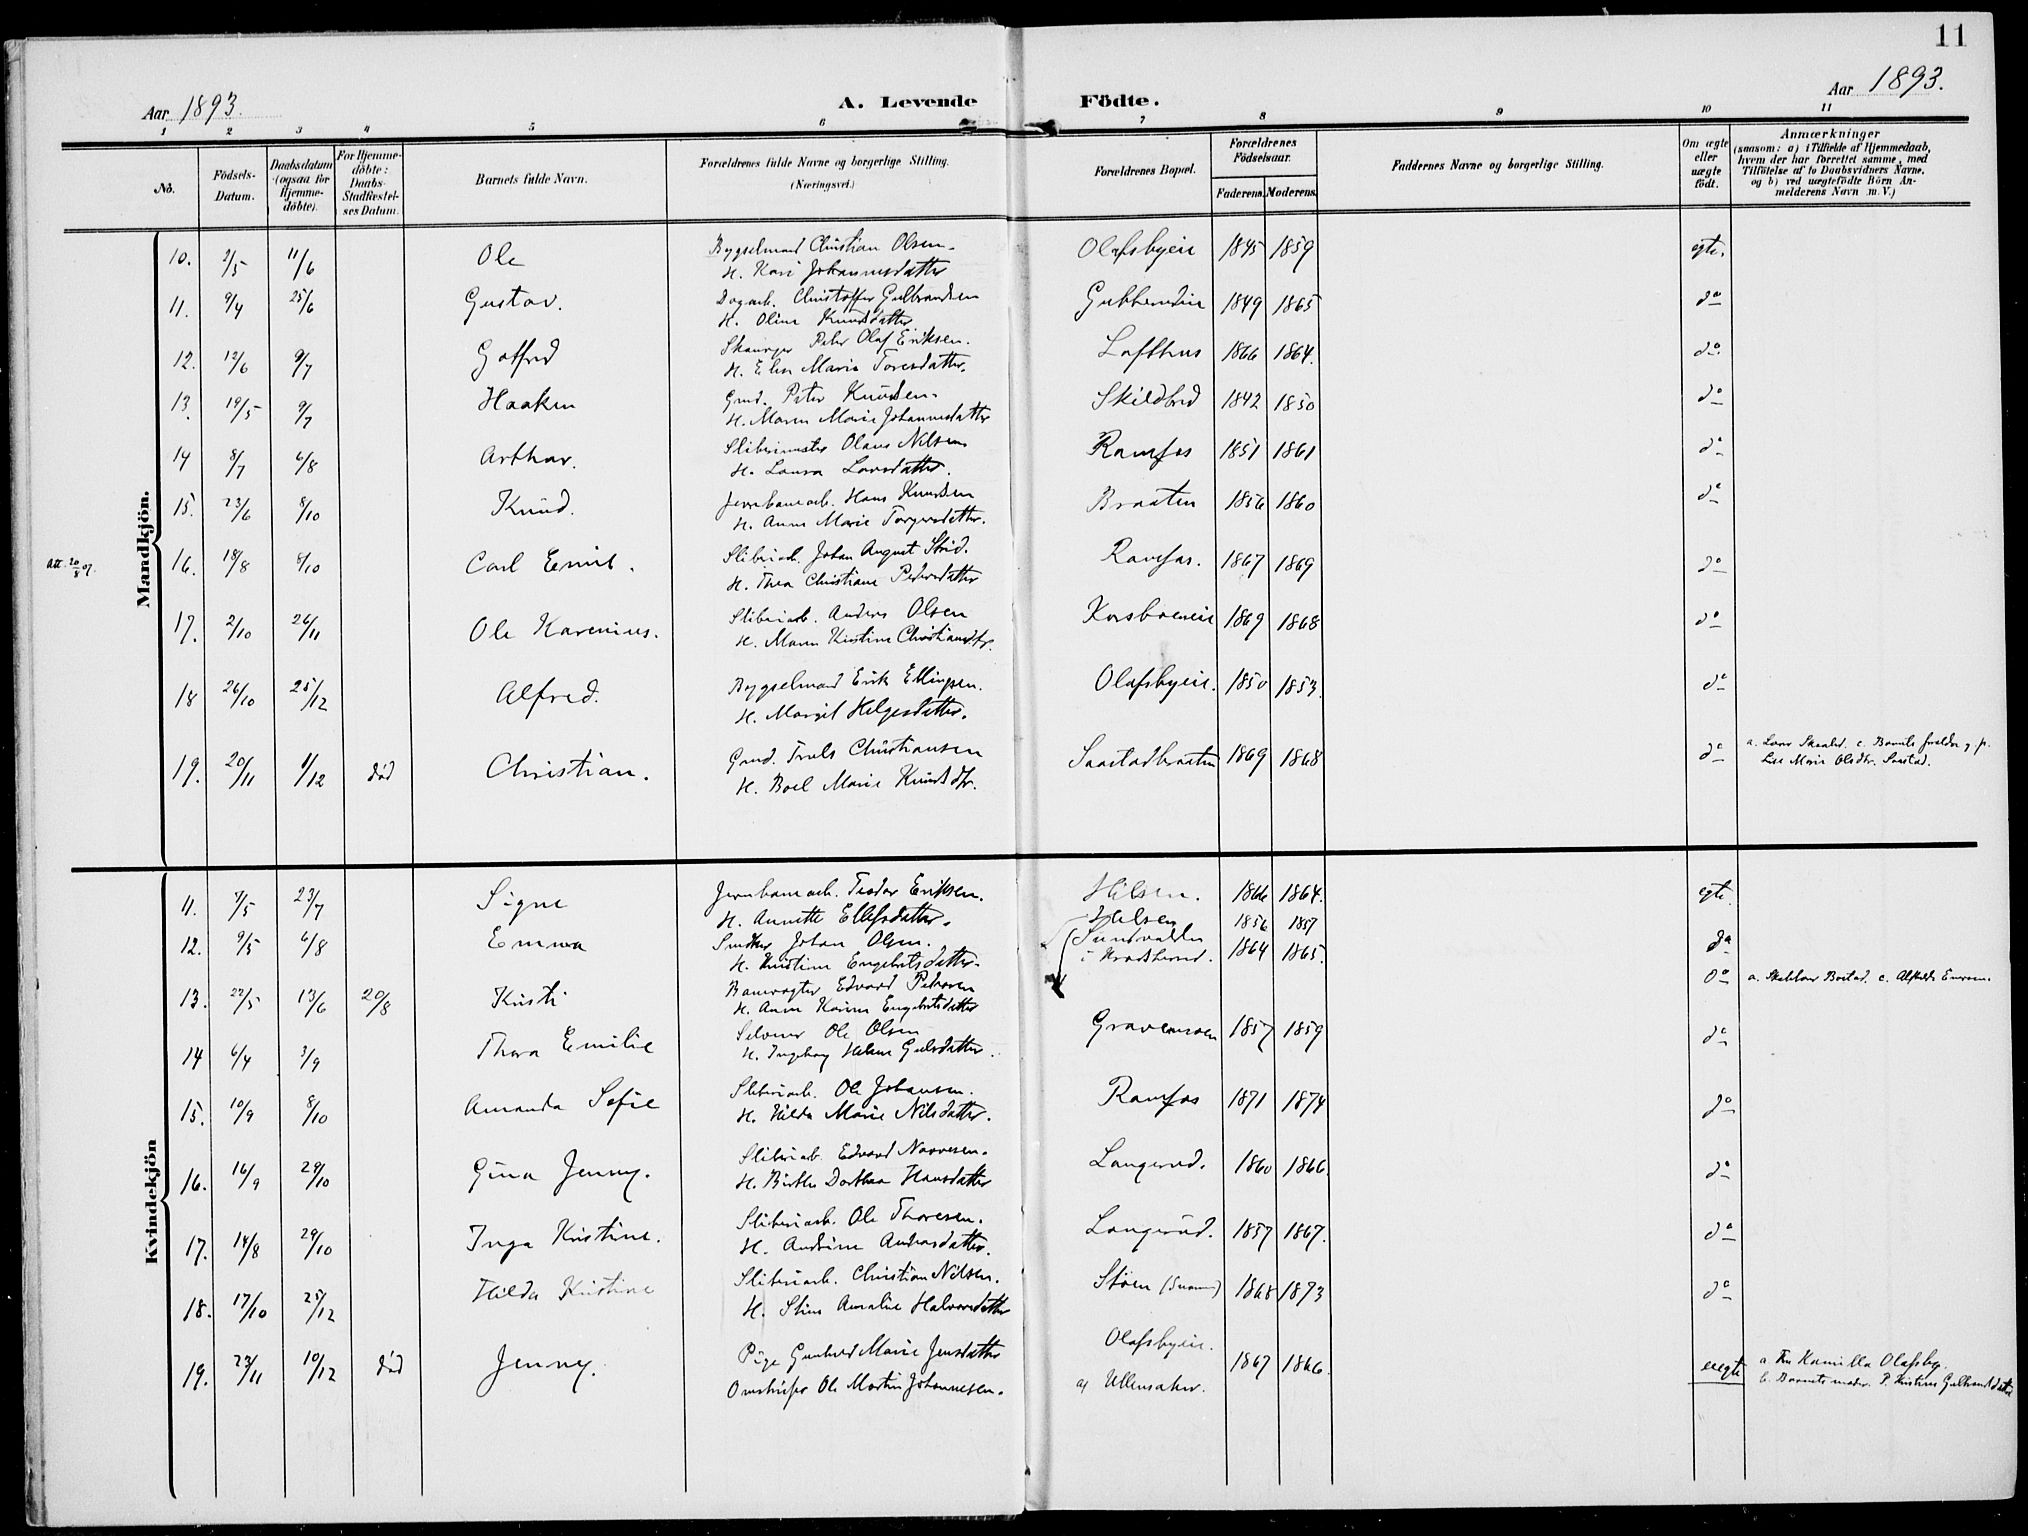 11
Aar 1893.
A. Levende Födte.
Aar 1893.
1 2 3 4 5 6 7 8 9 10 11
No.
Födsels-Datum.
Daabsdatum (ogsaa for Hjemme-döbte).
For Hjemme-döbte: Daabs-Stadfæstel-ses Datum.
Barnets fulde Navn.
Forældrenes fulde Navne og borgerlige Stilling.
(Næringsvei.)
Forældrenes Bopæl.
Forældrenes Födselsaar.
Faderens. Moderens.
Faddernes Navne og borgerlige Stilling.
Om ægte eller uægte födt.
Anmærkninger
(saasom: a) i Tilfælde af Hjemmedaab,
hvem der har forrettet samme, med
Tilföielse af to Daabsvidners Navne,
og b) ved uægtefödte Börn An-
melderens Navn m. V.)
Mandkjön.
10. 2/5 11/6 Ole Bygselmand Christian Olsen. Olafsbyeie 1845 1859 egte.
H. Kari Johannesdatter
11. 9/4 25/6 Gustav. Dagarb. Christoffer Gulbrandsen 1849 1865 do
H. Oline Knudsdatter
12. 12/6 9/7 Gotfred Peter Olaf Eriksen. Lofthus 1866 1864. do
H. Elen Marie Toresdatter.
13. 19/5 9/7 Haaken Gmd. Peter Knudsen. Skildbred 1842 1850 do
H. Maren Marie Johannesdatter
14 8/7 6/8 Arthur. Sliberimster Olaus Nilsen Ramfos 1851 1861 do
H. Laura Larsdatter.
15. 23/6 8/10 Knud. Jernbanearb. Hans Knudsen Braaten 1856 1860 do
H. Anne Marie Torgersdatter.
Att. 20/8 07.
16. 18/8 8/10 Carl Emil. Sliberiarb. Johan August Strid. Ramfos. 1867 1869 do
H. Thea Christiane Pedersdatter
17. 2/10 26/11 Ole Karenius. Sliberiarb. Anders Olsen Korsboeneie 1869 1868 do
H. Maren Kirstine Christiansdtr.
18 26/10 25/12 Alfred. Bygselmand Erik Ellingsen. Olafsbyeie. 1850 1853. do
H. Margit Helgesdatter.
19. 20/11 1/12 död Christian. Gmd. Truls Christiansen Saastadbraaten 1869 1868 do
H. Boel Marie Knudsdtr.
a. Lars c. Barnets forældre og p.
Marie Olsdtr. Saastad.
Kvindekjön
11. 7/5 23/7 Signe Jernbanearb. Teodor Eriksen. Hilsen. 1866 1864. egte.
H. Annette Ellefsdatter.
Hilsen 1856 1857
12. 9/5 6/8 Emma Snedker Johan Olsen. Sundvolden 1864 1865. do
H. Kristine Engebretsdatter. i Krødsherred.
13. 22/5 13/6 20/8 Kirsti Banevogter Edvard Petersen do
H. Anne Karine Engebretsdatter
a. Bostad. c.
14 6/4 3/9 Thora Emilie Selveier Ole Olsen Gravemoen 1857 1859 do
H. Ingeborg Helene Gulsdatter.
15. 10/9 8/10 Amanda Sofie Sliberiarb. Ole Johansen. Ramfos 1871 1874 do
H. Hilda Marie Nilsdatter.
16. 16/9 29/10 Gina Jenny. Sliberiarb. Edvard Narvesen. Langerud. 1860 1866. do
H. Birthe Dorthea Hansdatter
17. 14/8 29/10 Inga Kristine. Sliberiarb. Ole Thoresen. Langerud. 1857 1867. do
H. Andrine Andersdatter.
18. 17/10 25/12 Hilda Kristine Sliberiarb. Christian Nilsen. Støen (Snarum) 1868 1873 do
H. Stine Amalie Halvorsdatter
19. 23/11 10/12 död Jenny. Pige Gunhild Marie Jensdatter Olafsbyeie. 1867 1866. uegte
Ole Martin Johannesen. af Ullensaker.
a. Fru Kamilla Olafsby.
b. Barnets moder. P. Kristine Gulbrandsdatter